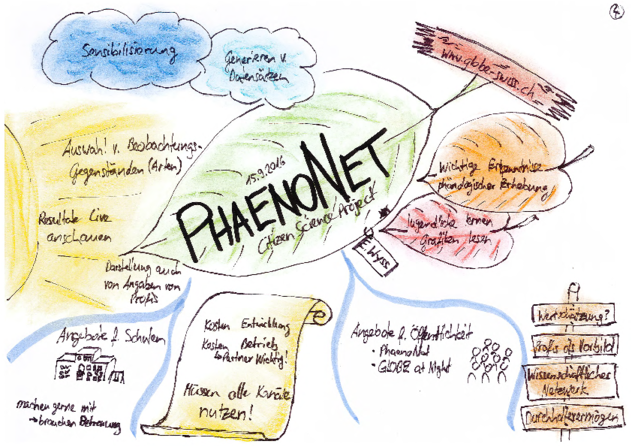 2
Sensibilisierung
Generieren v.
Datensätzen
www.globe-swiss.ch
Auswahl v. Beobachtungs-
Gegenständen (Arten)
Resultate Live
anschauen
Darstellung auch
von Angaben von
Profis
15.9.2016
PHAENONET
Citizen Science Project
E. Wyss
Wichtige Erkenntnisse
phänologischer Erhebung
Jugendliche lernen
Grafiken lesen
Angebote f. Schulen
machen gerne mit
→ brauchen Betreuung
Kosten Entwicklung
Kosten Betrieb
↳ Partner Wichtig!
Müssen alle Kanäle
nutzen!
Angebote f. Öffentlichkeit
• PhaenoNet
• GLOBE at Night
Wertschätzung?
Profis als Vorbild
Wissenschaftliches
Netzwerk
Durchhaltevermögen